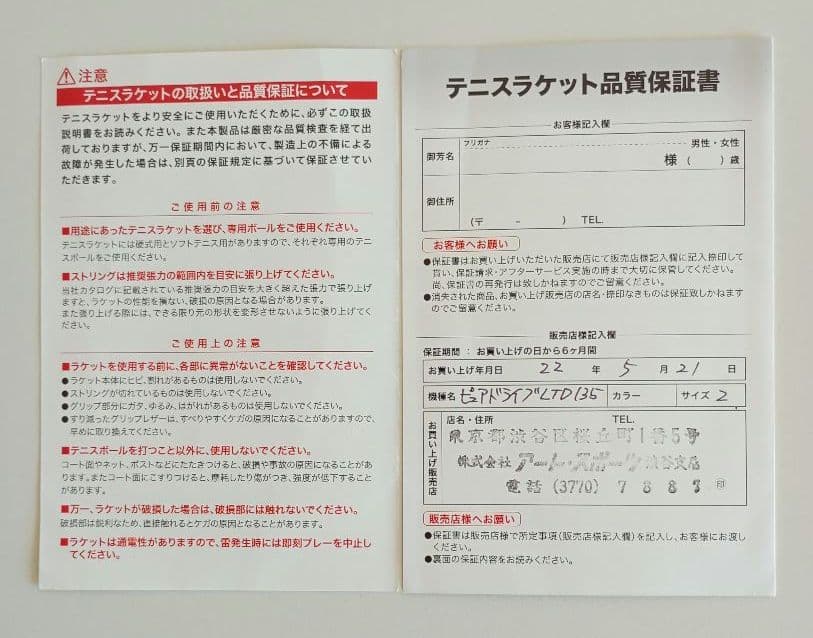 注意
テニスラケットの取扱いと品質保証について
テニスラケットをより安全にご使用いただくために、必ずこの取扱
説明書をお読みください。また本製品は厳密な品質検査を経て出
荷しておりますが、万一保証期間内において、製造上の不備による
故障が発生した場合は、別頁の保証規定に基づいて保証させてい
ただきます。
ご使用前の注意
■用途にあったテニスラケットを選び、専用ボールをご使用ください。
テニスラケットには硬式用とソフトテニス用がありますので、それぞれ専用のテニ
スボールをご使用ください。
■ストリングは推奨張力の範囲内を目安に張り上げてください。
当社カタログに記載されている推奨張力の目安を大きく超えた張力で張り上げ
ますと、ラケットの性能を損ない、破損の原因となる場合があります。
また張り上げる際には、できる限り元の形状を変形させないように張り上げてく
ださい。
ご使用上の注意
■ラケットを使用する前に、各部に異常がないことを確認してください。
●ラケット本体にヒビ、割れがあるものは使用しないでください。
●ストリングが切れているものは使用しないでください。
●グリップ部分にガタ、ゆるみ、はがれがあるものは使用しないでください。
●すり減ったグリップレザーは、すべりやすくケガの原因になることがありますので、
早めに取り換えてください。
■テニスボールを打つこと以外に、使用しないでください。
コート面やネット、ポストなどにたたきつけると、破損や事故の原因になることがあ
ります。またコート面にこすりつけると、摩耗したり傷がつき、強度が低下すること
があります。
■万一、ラケットが破損した場合は、破損部には触れないでください。
破損部は鋭利なため、直接触れるとケガの原因となることがあります。
■ラケットは通電性がありますので、雷発生時には即刻プレーを中止し
てください。
テニスラケット品質保証書
お客様記入欄
フリガナ
男性・女性
御芳名
様 ( ) 歳
御住所
(〒 － ) TEL.
お客様へお願い
●保証書はお買い上げいただいた販売店にて販売店様記入欄に記入捺印して
貰い、保証請求・アフターサービス実施の時まで大切に保管してください。
尚、保証書の再発行は致しかねますのでご留意ください。
●消失された商品、お買い上げ販売店の店名・捺印なきものは保証致しかねます
のでご留意ください。
販売店様記入欄
保証期間 : お買い上げの日から6ヶ月間
お買い上げ年月日 22 年 5 月 21 日
機種名 ピュアドライブLTD135 カラー サイズ 2
お買い上げ販売店
店名・住所 TEL.
東京都渋谷区桜丘町1番5号
株式会社 アートスポーツ 渋谷支店
電話 (3770) 7883 印
販売店様へお願い
●保証書は販売店様で所定事項(販売店様記入欄)を記入し、お客様にお渡し
ください。
●裏面の保証内容をお読みください。